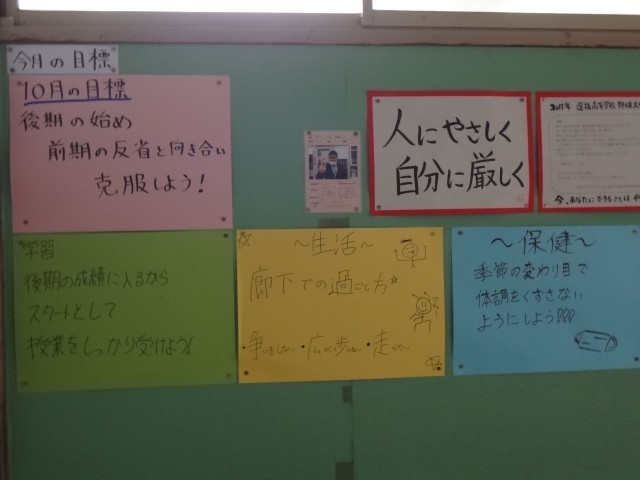 今月の目標
10月の目標
後期の始め
前期の反省と向き合い
克服しよう!
人にやさしく
自分に厳しく
2011年 選抜高等学校野球大
今、あなたにできることは
学習
後期の成績に入るから
スタートとして
授業をしっかり受けよう!
〜生活〜
廊下での過ごし方
・争いをしない ・広がって歩かない ・走らない
〜保健〜
季節の変わり目で
体調をくずさない
ようにしよう!!!